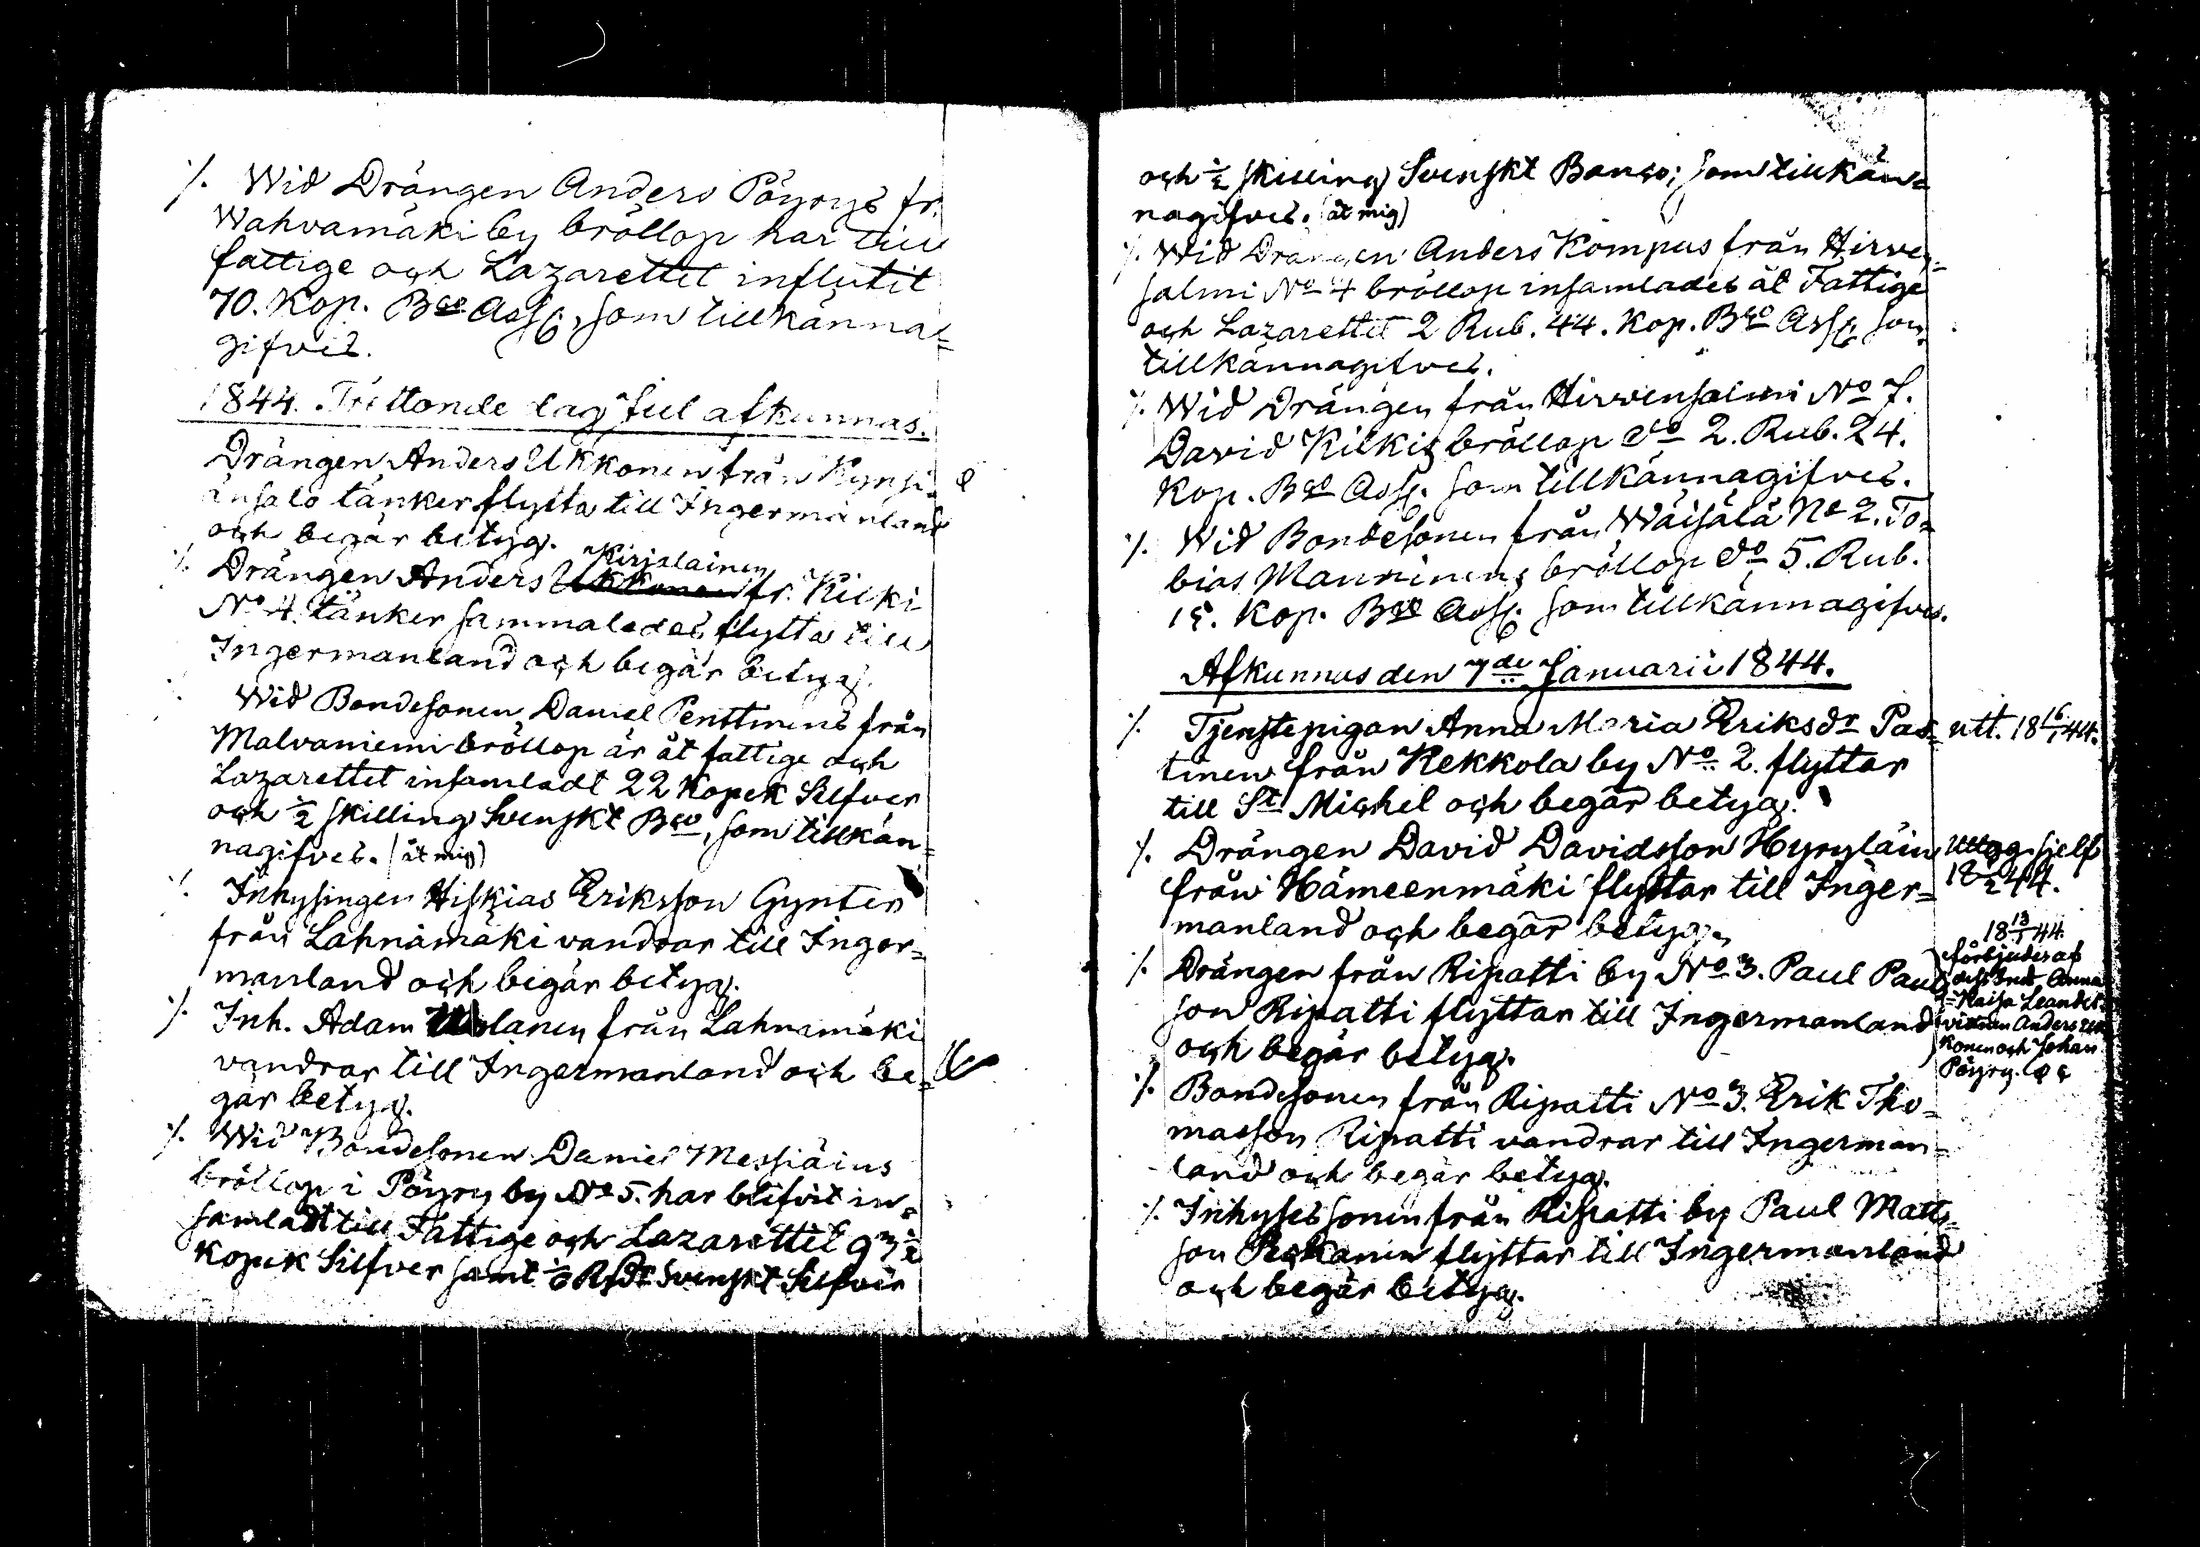 ./. Wid Drängen Anders Pöyrys fr.
Wahvamäki by bröllop har till
fattige och Lazarettet influtit
70. Kop. Bco Ass, som tillkänna=
gifves.
1844. Trettonde dag Jul afkunnas.
Drängen Anders Ukkonen från Kynsi=
änsalo tänker flytta till Ingermanland
och begär betyg.
./. Drängen Anders Kirjalainen fr. Kilki
No 4. tänker sammaledes flytta till
Ingermanland och begär betyg.
Wid Bondesonen Daniel Penttinens från
Malvaniemi bröllop är åt fattige och
Lazarettet insamladt 22 Kopek Silfver
och ½ skilling Svenskt Bco, som tillkän=
nagifves. (åt mig)
./. Inhysingen Hiskias Eriksson Gynter
från Lahnamäki vandrar till Inger=
manland och begär betyg.
./. Inh. Adam från Lahnamäki
vandrar till Ingermanland och be=
gär betyg.
./. Wid Bondesonen Daniel Messiäins
bröllop i Pöyry by No 5. har blifvit in=
samladt till Fattige och Lazarettet 93½
Kopek Silfver samt ⅙ Rdr Svenskt Silfver
och ½ skilling Svenskt Banco; som tillkän=
nagifves. (åt mig)
./. Wid Drängen Anders Kompus från Hirven=
salmi No 4 bröllop insamlades åt Fattige
och Lazarettet 2 Rub. 44. Kop. Bco Ass, som
tillkännagifves.
./. Wid Drängen från Hirvensalmi No 7.
David Kilkis bröllop do 2. Rub. 24.
Kop. Bco Ass. som tillkännagifves.
./. Wid Bondesonen från Wäisälä No 2. To=
bias Manninens bröllop do 5. Rub.
15. Kop. Bco Ass. som tillkännagifves.
Afkunnas den 7de Januarii 1844.
./. Tjenstepigan Anna Maria Eriksdr Pas= utt. 18 16/1 44.
tinen från Kekkola by No 2. flyttar
till St Michel och begär betyg.
./. Drängen David Davidsson Hyryläin Uttog sjelf
från Hämeenmäki flyttar till Inger= 18 44.
manland och begär betyg.
./. Drängen från Ripatti by No 3. Paul Pauls
son Ripatti flyttar till Ingermanland
och begär betyg.
18 13/1 44.
förbjudes af
dess Enka Anna
Kaisa Leander
vittnen Anders Uk
konen och Johan
Pöyry.
./. Bondesonen från Ripatti No 3. Erik Tho=
masson Ripatti vandrar till Ingerman=
land och begär betyg.
./. Inhyses sonen från Ripatti by Paul Matts=
son flyttar till Ingermanland
och begär betyg.